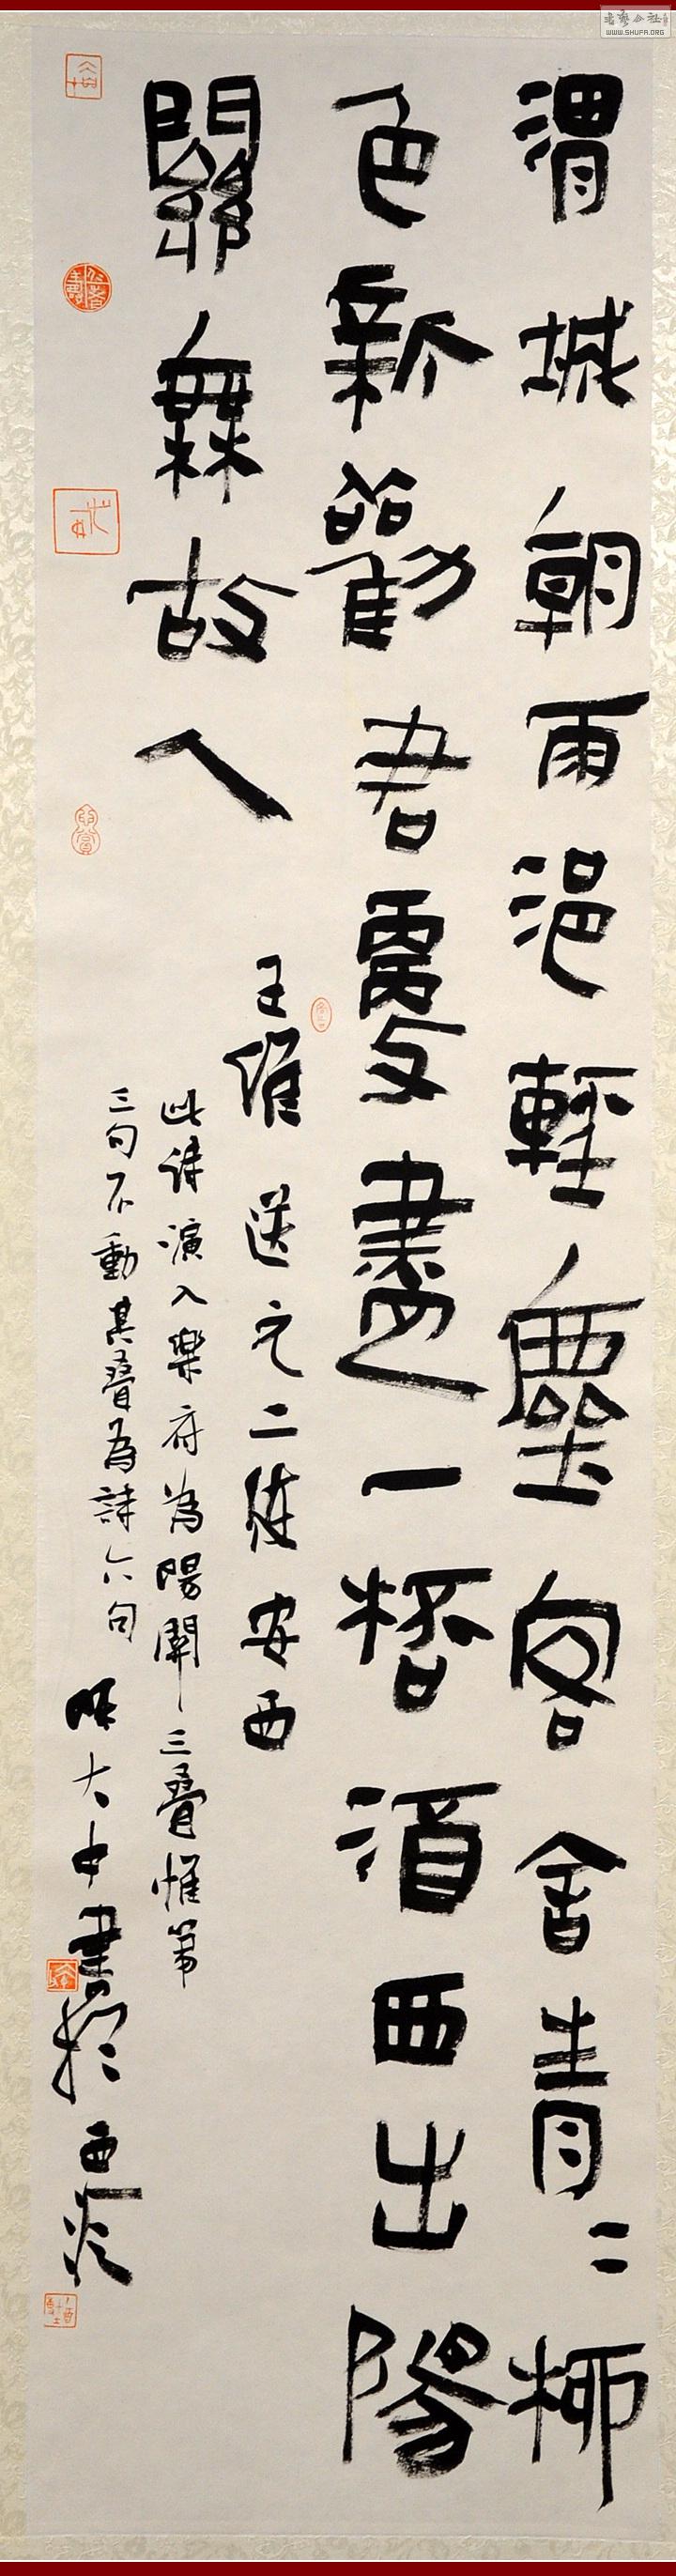 渭城朝雨浥輕塵客舍青〻柳
色新勸君更盡一桮酒西出陽
關無故人
王維 送元二使安西
此詩演入樂府為陽關三疊惟第
三句不動其疊為詩六句
大中書於
WWW.SHUFA.ORG